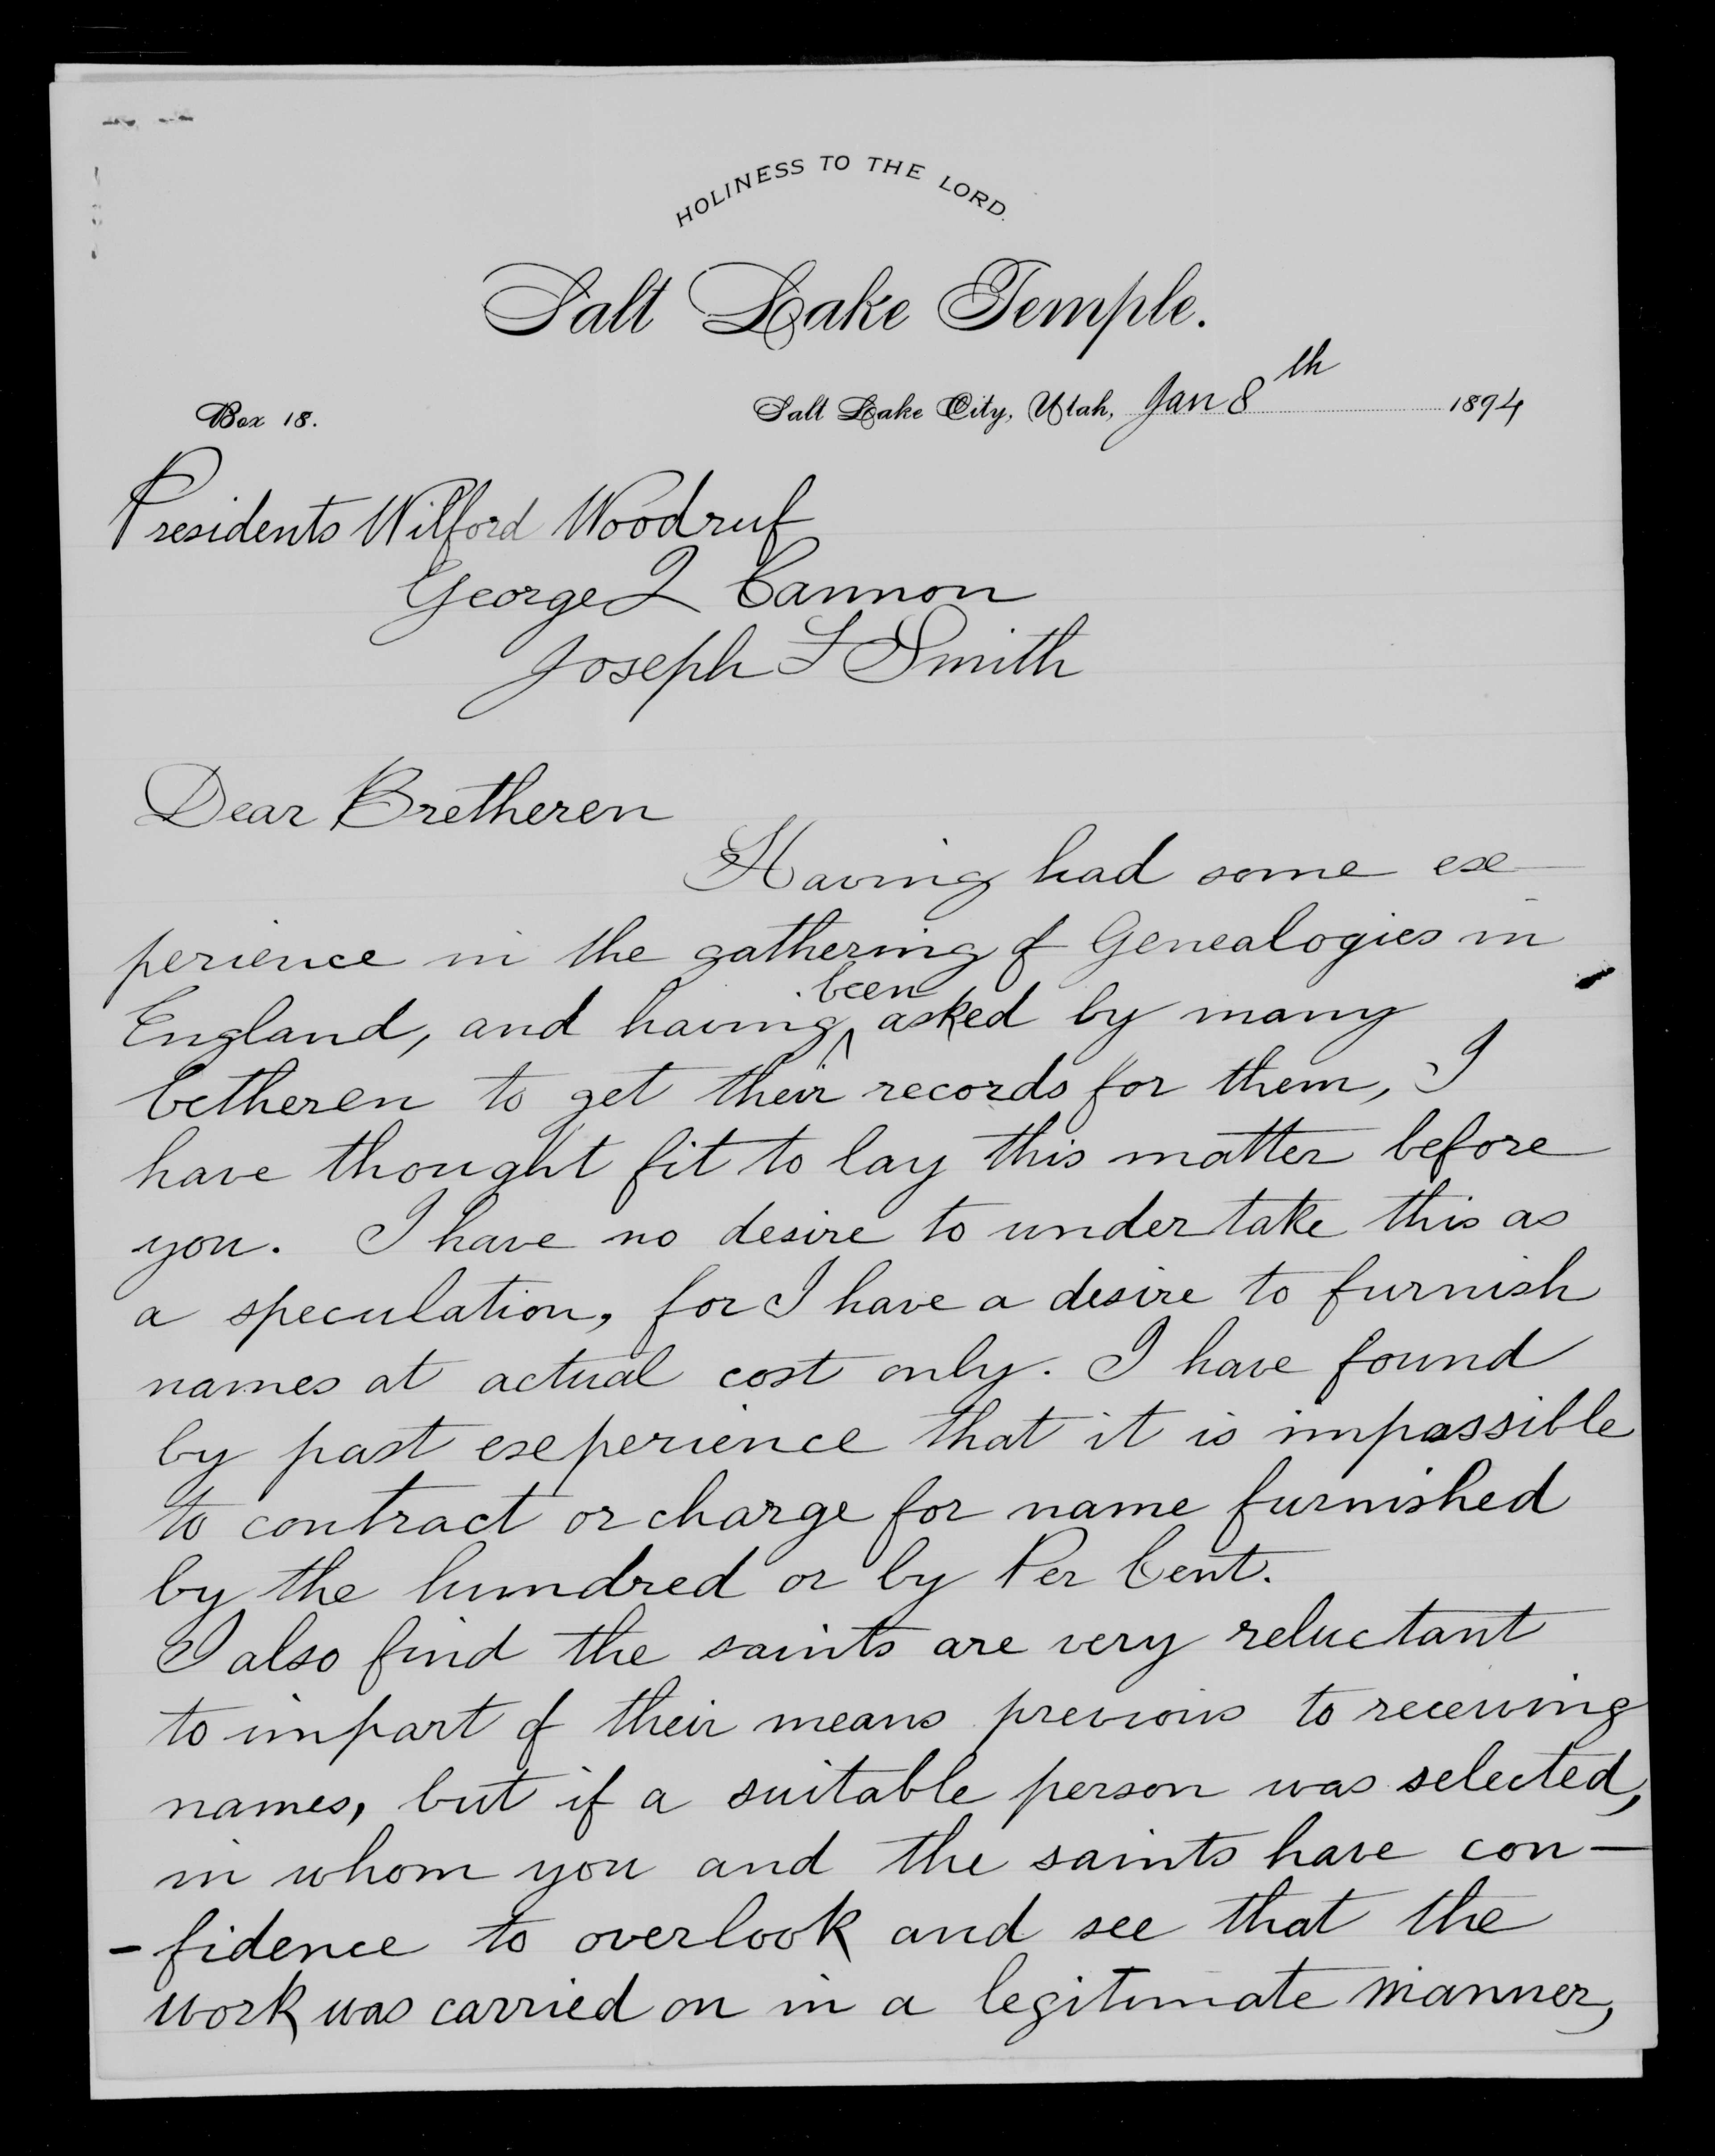 HOLINESS TO THE LORD.
Salt Lake Temple.
Box 18.
Salt Lake City, Utah, Jan 8th 1894
Presidents Wilford Woodruf
George Q Cannon
Joseph F Smith
Dear Bretheren
Having had some ex-
perience in the gathering of Genealogies in
been
England, and having ^ asked by many
betheren to get their records for them, I
have thought fit to lay this matter before
you. I have no desire to undertake this as
a speculation, for I have a desire to furnish
names at actual cost only. I have found
by past experience that it is impossible
to contract or charge for name furnished
by the hundred or by Per Cent.
I also find the saints are very reluctant
to impart of their means previous to receiving
names, but if a suitable person was selected,
in whom you and the saints have con-
-fidence to overlook and see that the
work was carried on in a legitimate manner,